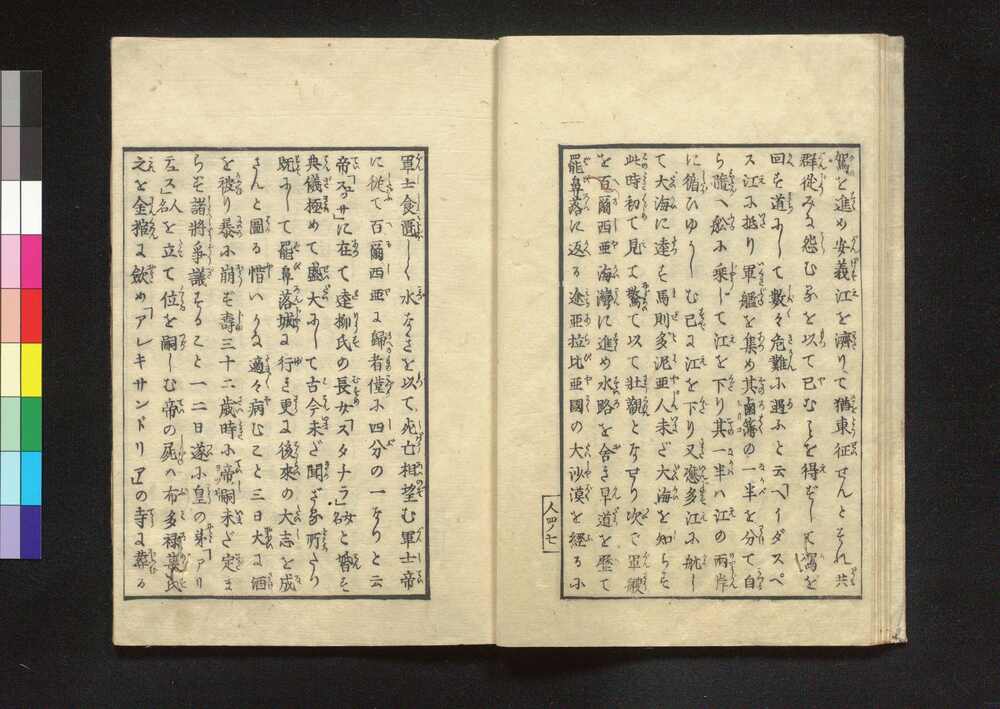 駕を進め安義江を濟りて猶東征せんとそれ共
群從みな怨むるを以て已むことを得ずして駕を
回す道にして數々危難に遇ふと云「ヘイダスペ
ス江に抵り軍艦を集め其鹵簿の一半を分て自
ら隨へ舩に乘じて江を下り其一半ハ江の兩岸
に循ひゆかしむ已に江を下り又應多江に航し
て大海に達す馬則多泥亜人未だ大海を知らず
此時初て見て驚て以て壯觀となせり次で軍艘
を百爾西亜海灣に進め水路を舍き旱道を歴て
羅鼻落に返る途亜拉比亜國の大沙漠を經るに
人四ノ七
軍士食匱しく水なきを以て死亡相望む軍士帝
に從て百爾西亜に歸者僅に四分の一なりと云
帝「スサ」に在て達柳氏の長女「スタナラ」女名と婚す
典儀極めて盛大にして古今未だ聞ざる所たり
既にして羅鼻落城に行き更に後來の大志を成
さんと圖る惜いかな適々病むこと三日大に酒
を被り暴に崩ず壽三十二歳時に帝嗣未だ定ま
らず諸將爭議すること一二日遂に皇の弟「アリ
デス」人名を立て位を嗣しむ帝の屍ハ布多禄某氏
之を金槨に斂め「アレキサンドリア」の寺に葬る